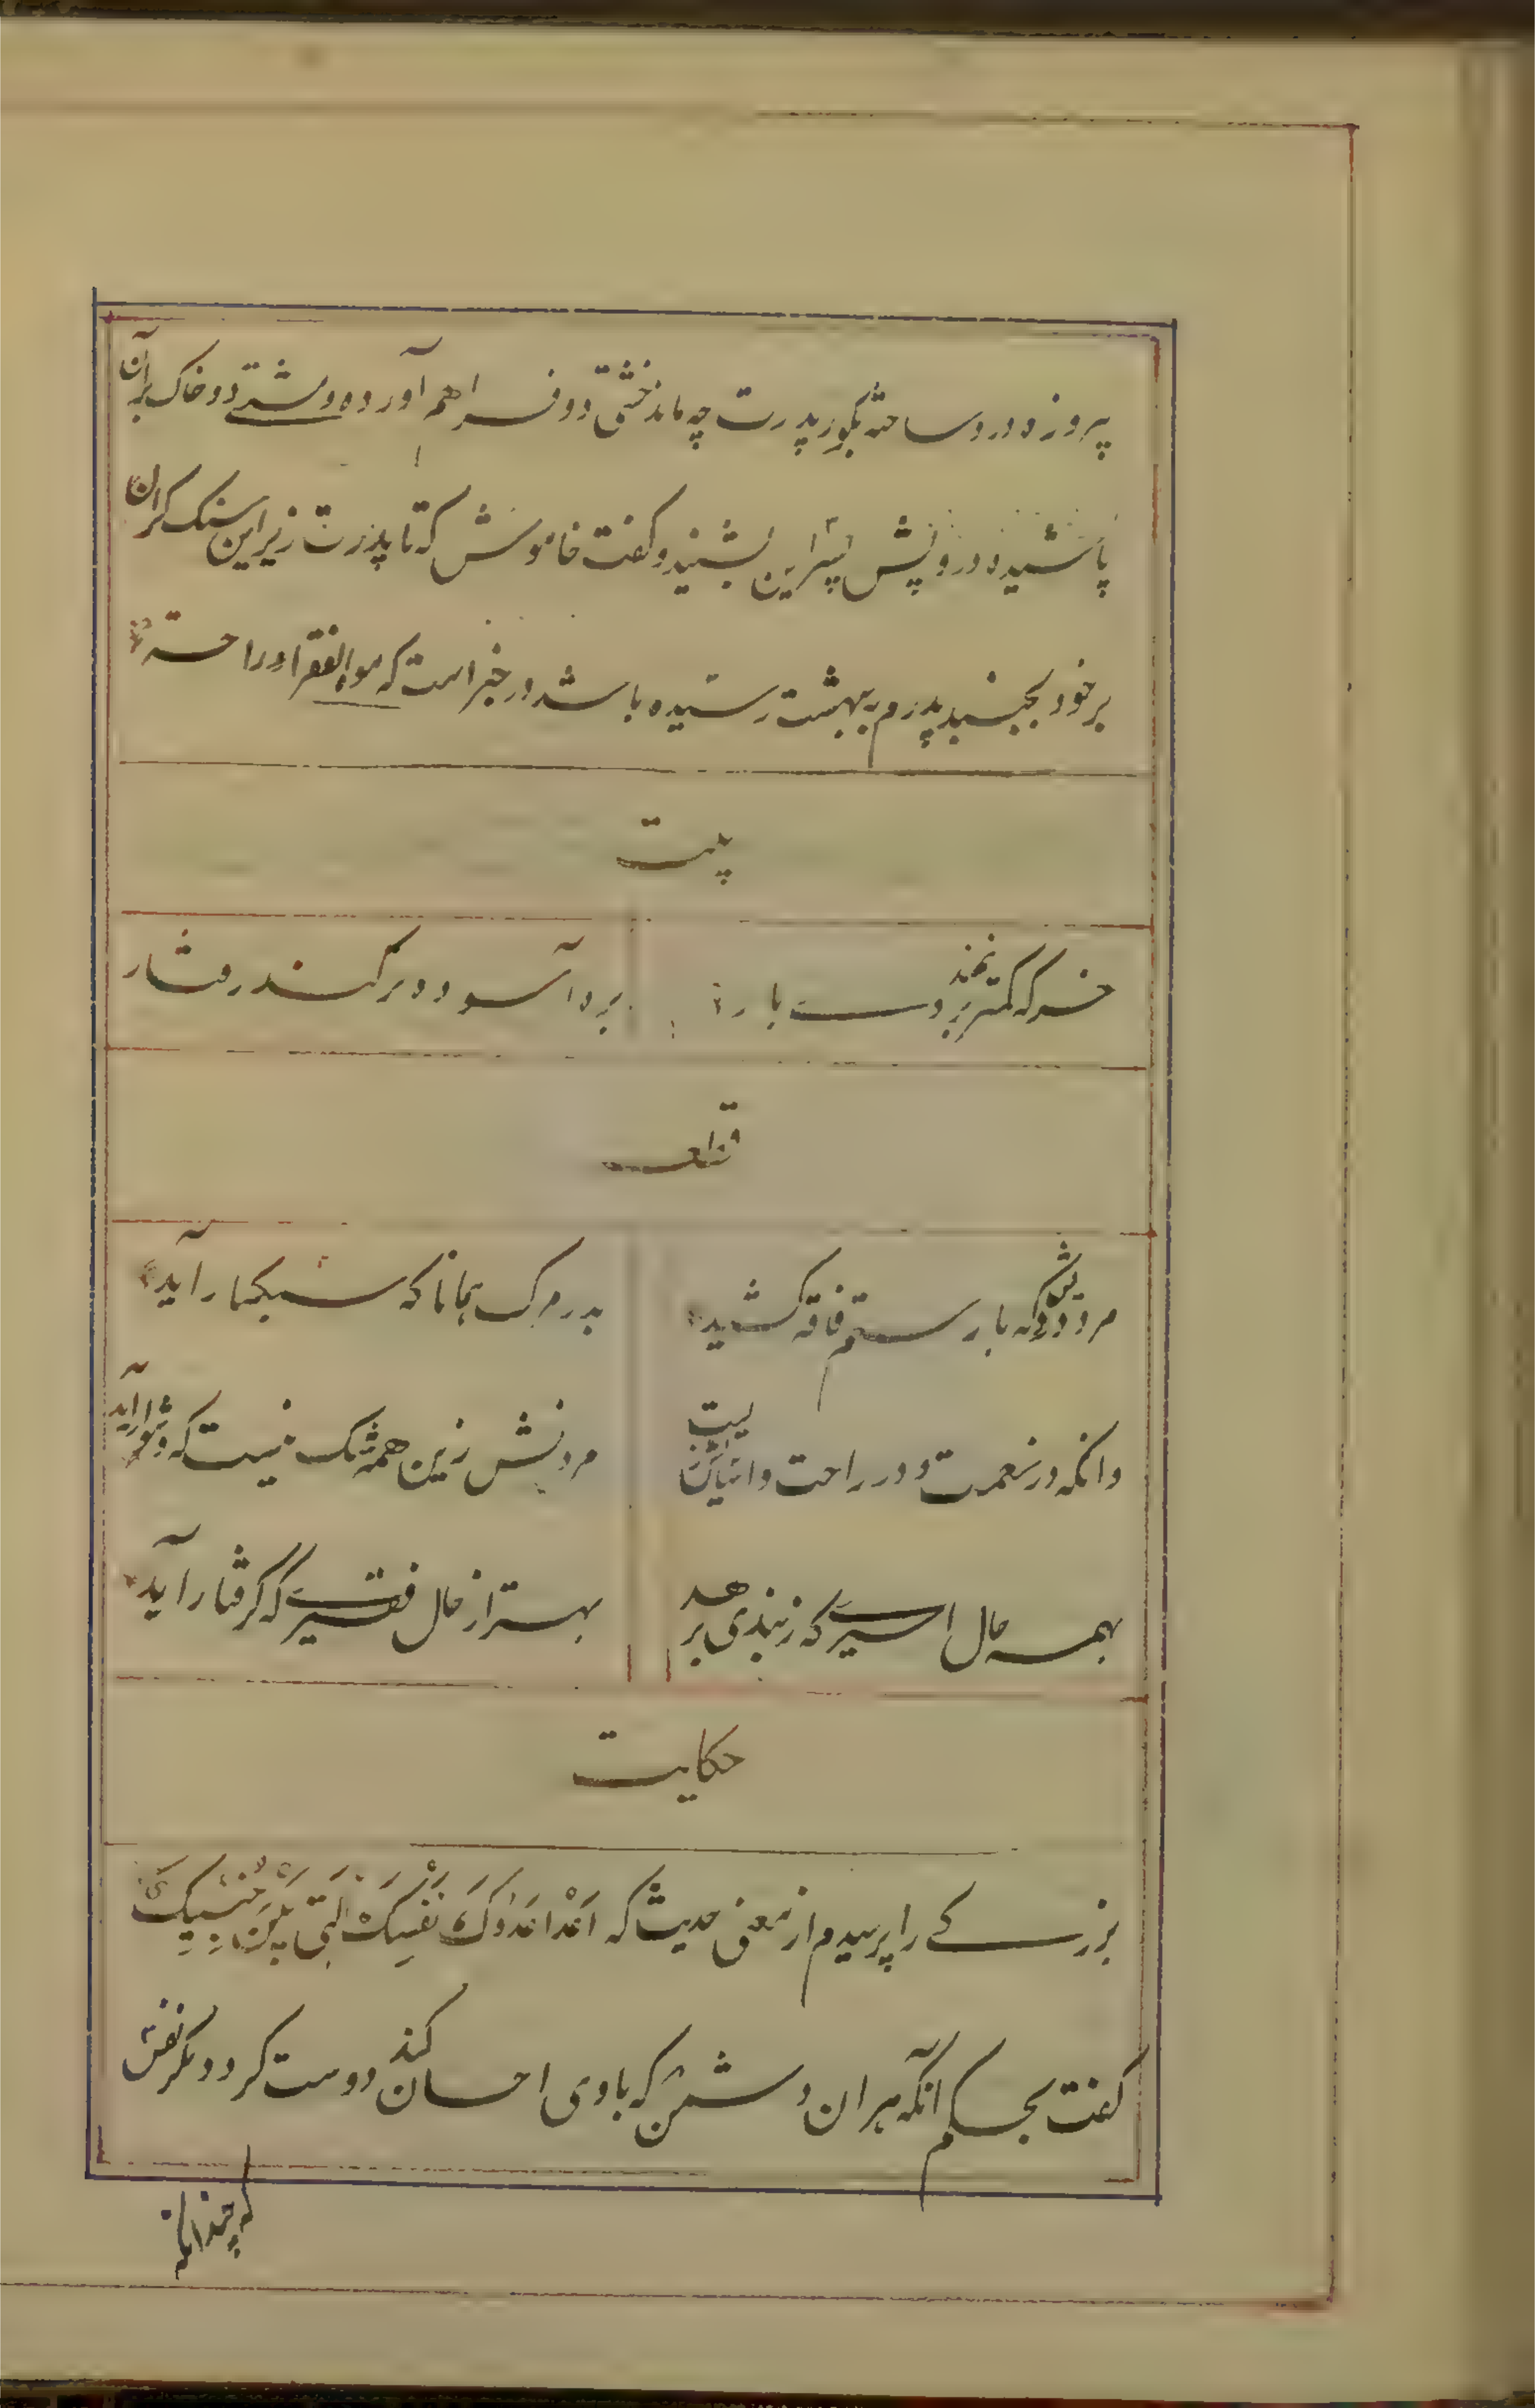 پیروزه درو ساخته بکور پدرت چه ماند خشتی دو فراهم آورده و مشتے دو خاک بر آن
پاشیده درویش پسر این بشنید و کفت خاموش که تا پدرت زیر این سنک کران
بر خود بجنبد پدرم ببهشت رسیده باشد در خبر است که موت الفقرا راحة
بیت
خر که کمتر نهند بروے بار بره آسوده تر کند رفتار
قطعه
مرد درویش که بار ستم فاقه کشید بدر مرک همانا که سبکبار آید
وانکه در نعمت و در راحت و آسانی زیست مردنش زین همه شک نیست که دشوار آید
بهمه حال اسیرے که ز بندی برهد بهتر از حال فقیرے که کرفتار آید
حکایت
بزرکے را پرسیدم از معنی حدیث که اَعْدا عَدُوِّکَ نَفْسِکَ الَّتی بَیْنَ جَنْبَیْکَ
کفت بحکم آنکه هر آن دشمن که با وی احسان کنی دوست کردد مکر نفس
که چندانکه